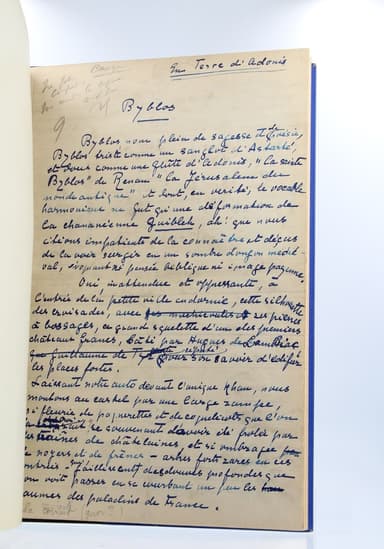 En Terre d'Adonis
Byblos
9
Byblos nom plein de sagesse et de poésie,
Byblos triste comme un sanglot d'Astarté,
et doux comme une flûte d'Adonis, "la sainte
Byblos" de Renan "la Jérusalem du
monde antique" et dont, en vérité, le vocable
harmonieux ne fut qu'une déformation de
la chananéenne Guibleh, ah! que nous
étions impatients de la connaître et déçus
de la voir surgir en un sombre donjon médié-
val, évoquant ni pensée biblique ni image païenne.
Oui inattendue et oppressante, à
l'entrée de la petite ville endormie, cette silhouette
des croisades, avec ses pierres
à bossages, ce grand squelette d'un des premiers
châteaux francs, bâti par Hugues de
que Guillaume de pour son savoir d'édifier
les places fortes.
Laissant notre auto devant l'unique Khan, nous
montons au castel par une large rampe,
si fleurie de paquerettes et de coquelicots que l'on
se souvenant d'avoir été frôlé par
les traînes de châtelaines, et si ombragée
de noyers et de frênes - arbres fort rares en ces
contrées - qu'ils ont des ombres profondes que
l'on voit passer en se courbant un peu les
aumes des paladins de France.